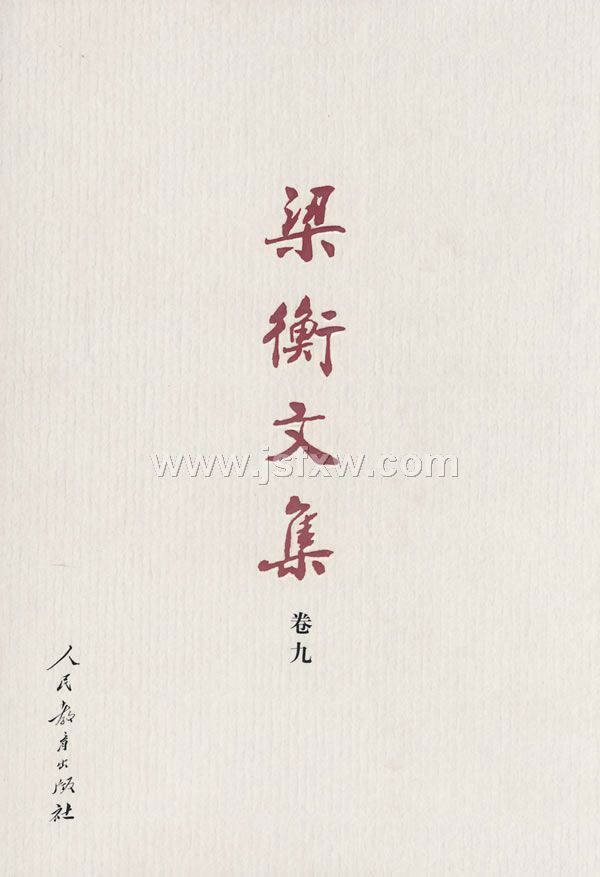 梁衡文集
www.jsfxw.com
卷九
人民教育出版社